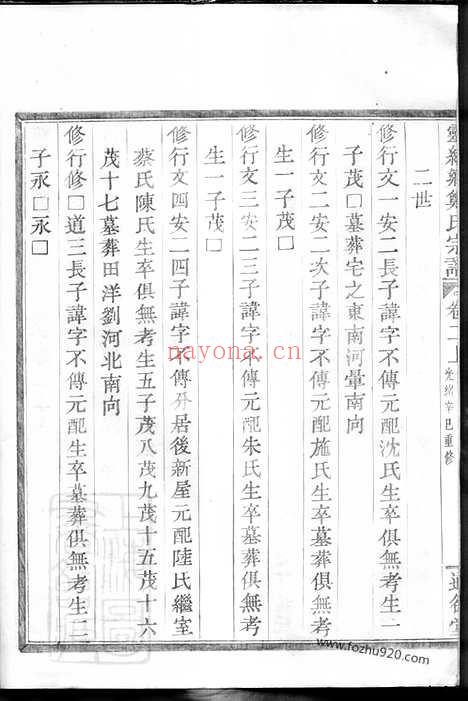 鄭氏宗譜 卷二上 光緒辛巳重修
二世
修行文一安二長子諱字不傳元配沈氏生卒墓葬俱無考生二
子茂□墓葬宅之東南河暈南向
修行文二安二次子諱字不傳元配施氏生卒墓葬俱無考
生一子茂□
修行文三安二三子諱字不傳元配朱氏生卒墓葬俱無考
生一子茂□
修行文四安二四子諱字不傳分居後新屋元配陸氏繼室
蔡氏陳氏生卒俱無考生五子茂八茂九茂十五茂十六
茂十七墓葬田洋劉河北南向
修行修□道三長子諱字不傳元配生卒墓葬俱無考生二
子永□永□
nayona.cn
www.fozhu920.com